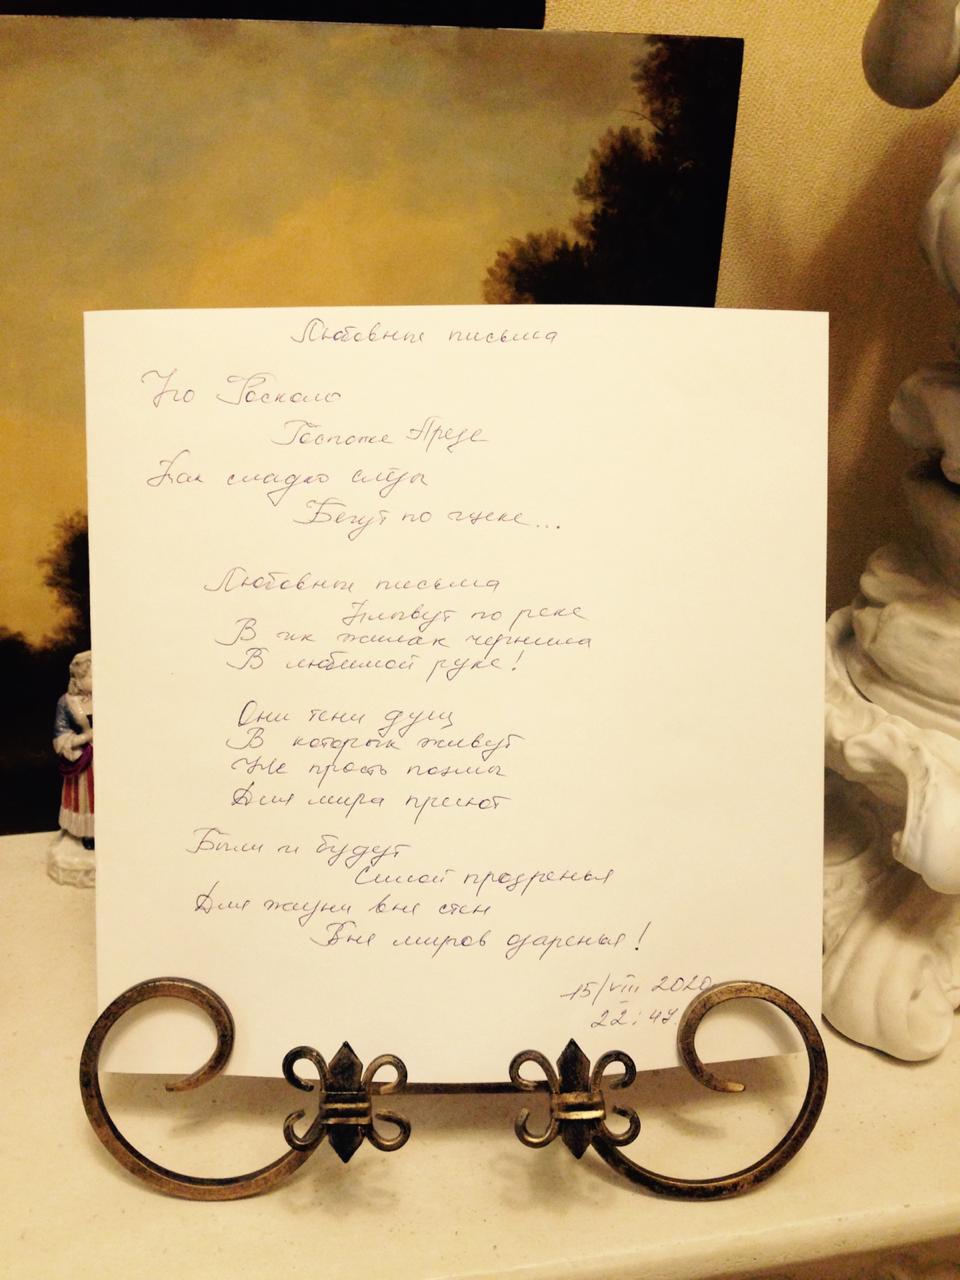 Любовные письма
Уго Фосколо
Госпоже Арезе
Как сладко слёзы
Бегут по щеке...
Любовные письма
Плывут по реке
В их жилах чернила
В любимой руке!
Они тени душ
В которых живут
Не прость поэмы
Для мира приют
Были и будут
Силой прозренья
Для жизни вне стен
Вне миров озаренья!
15/VIII 2020
22:47